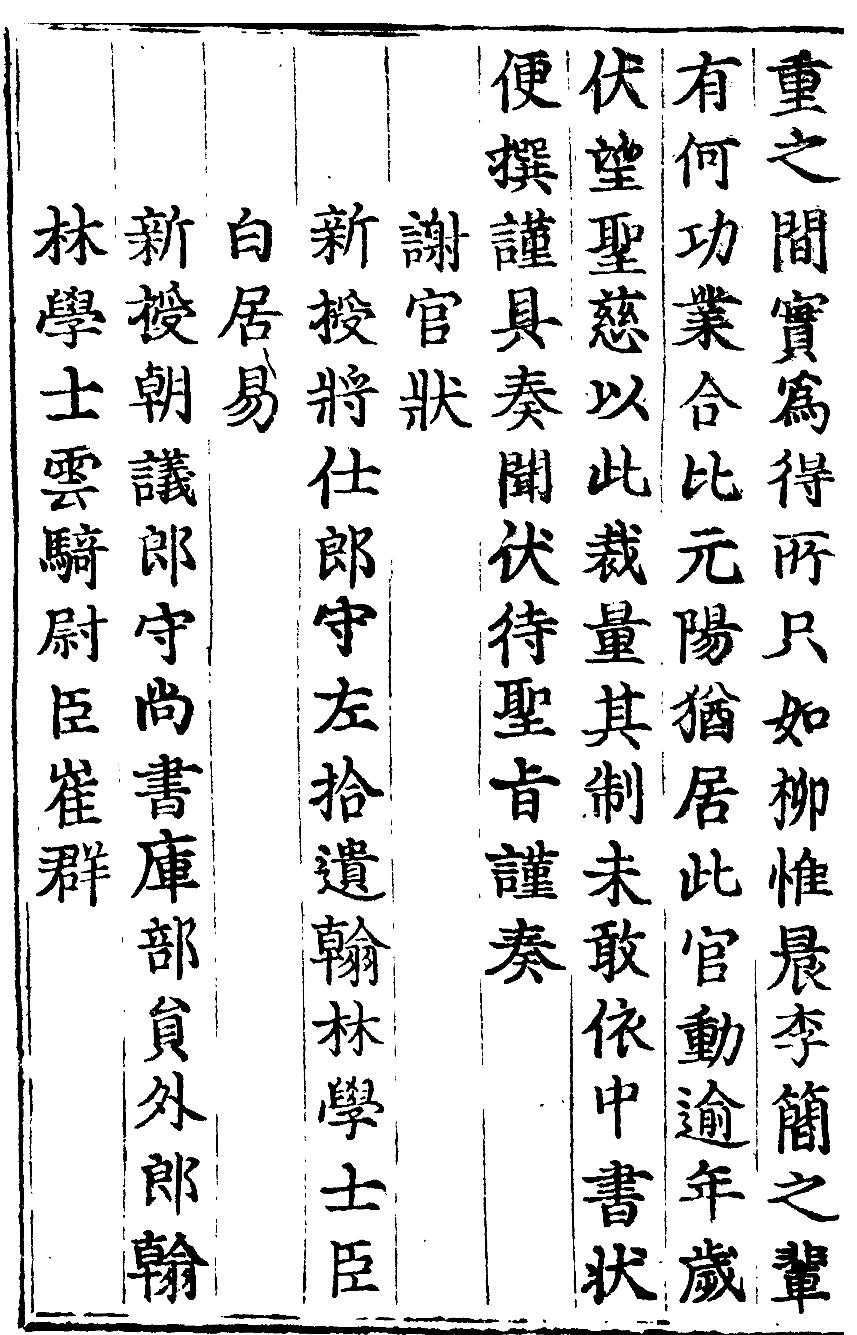 重之間實爲得所只如柳惟晨李簡之輩
有何功業合比元陽猶居此官動逾年歲
伏望聖慈以此裁量其制未敢依中書狀
便撰謹具奏聞伏待聖旨謹奏
謝官狀
新授將仕郎守左拾遺翰林學士臣
白居易
新授朝議郎守尚書庫部貟外郎翰
林學士雲騎尉臣崔群